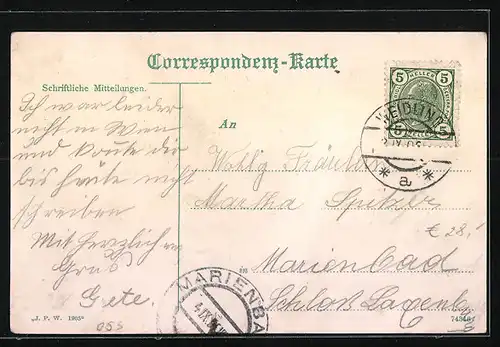 Correspondenz-Karte
Schriftliche Mitteilungen.
Ich war leider
nicht in Wien
und konnte dir
bis heute nicht
schreiben
Mit herzlichem
Gruß
Grete.
An
Wohlg Fräulein
Martha Spitzer
in
Marienbad
Schloß
5 HELLER 5
5 5
WEIDLING
* a *
€ 28,-
MARIENBA
„J. P. W. 1905"
055